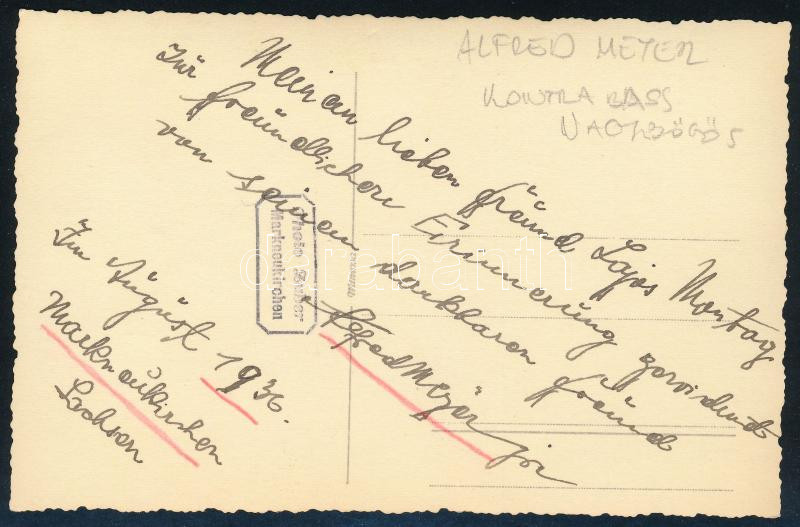 ALFRED MEYER
KONTRA BASS
NAGYBŐGŐS
Meinen lieben Freund Lajos Montag
zur freundlichen Erinnerung gewidmet
von seinem dankbaren Freund
Alfred Meyer jr
Im August 1936.
Markneukirchen
Sachsen
Photo Zuber
Markneukirchen
darabanth